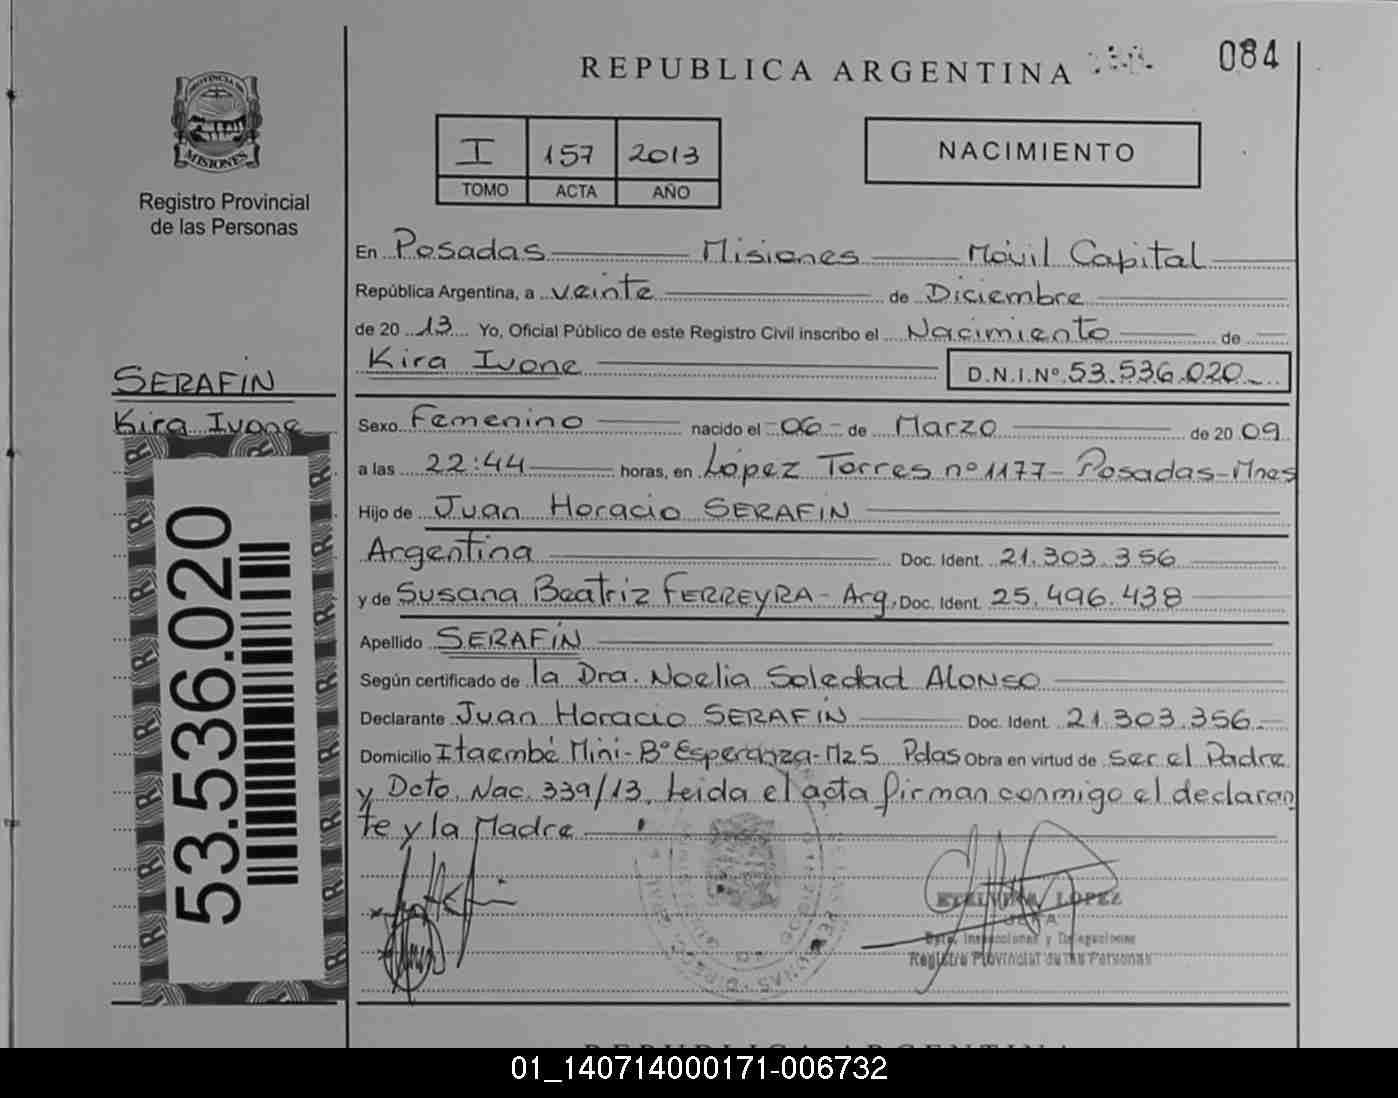 REPUBLICA ARGENTINA
084
PROVINCIA DE
MISIONES
Registro Provincial
de las Personas
I 157 2013
TOMO ACTA AÑO
NACIMIENTO
En Posadas Misiones Móvil Capital
República Argentina, a veinte de Diciembre
de 20 13 Yo, Oficial Público de este Registro Civil inscribo el Nacimiento de
Kira Ivone D.N.I.Nº 53.536.020
SERAFÍN
Kira Ivone
53.536.020
Sexo Femenino nacido el 06 de Marzo de 20 09
a las 22:44 horas, en López Torres nº 1177 - Posadas - Mnes
Hijo de Juan Horacio SERAFÍN
Argentina Doc. Ident. 21.303.356
y de Susana Beatriz FERREYRA - Arg. Doc. Ident. 25.496.438
Apellido SERAFÍN
Según certificado de la Dra. Noelia Soledad Alonso
Declarante Juan Horacio SERAFÍN Doc. Ident. 21.303.356
Domicilio Itaembé Mini - Bº Esperanza - Mz 5 Pdas Obra en virtud de ser el Padre
y Dcto. Nac. 339/13. Leida el acta firman conmigo el declaran
te y la Madre
ETELVINA LOPEZ
JEFA
Dpto. Inspecciones y Delegaciones
Registro Provincial de las Personas
REPUBLICA ARGENTINA
01_140714000171-006732